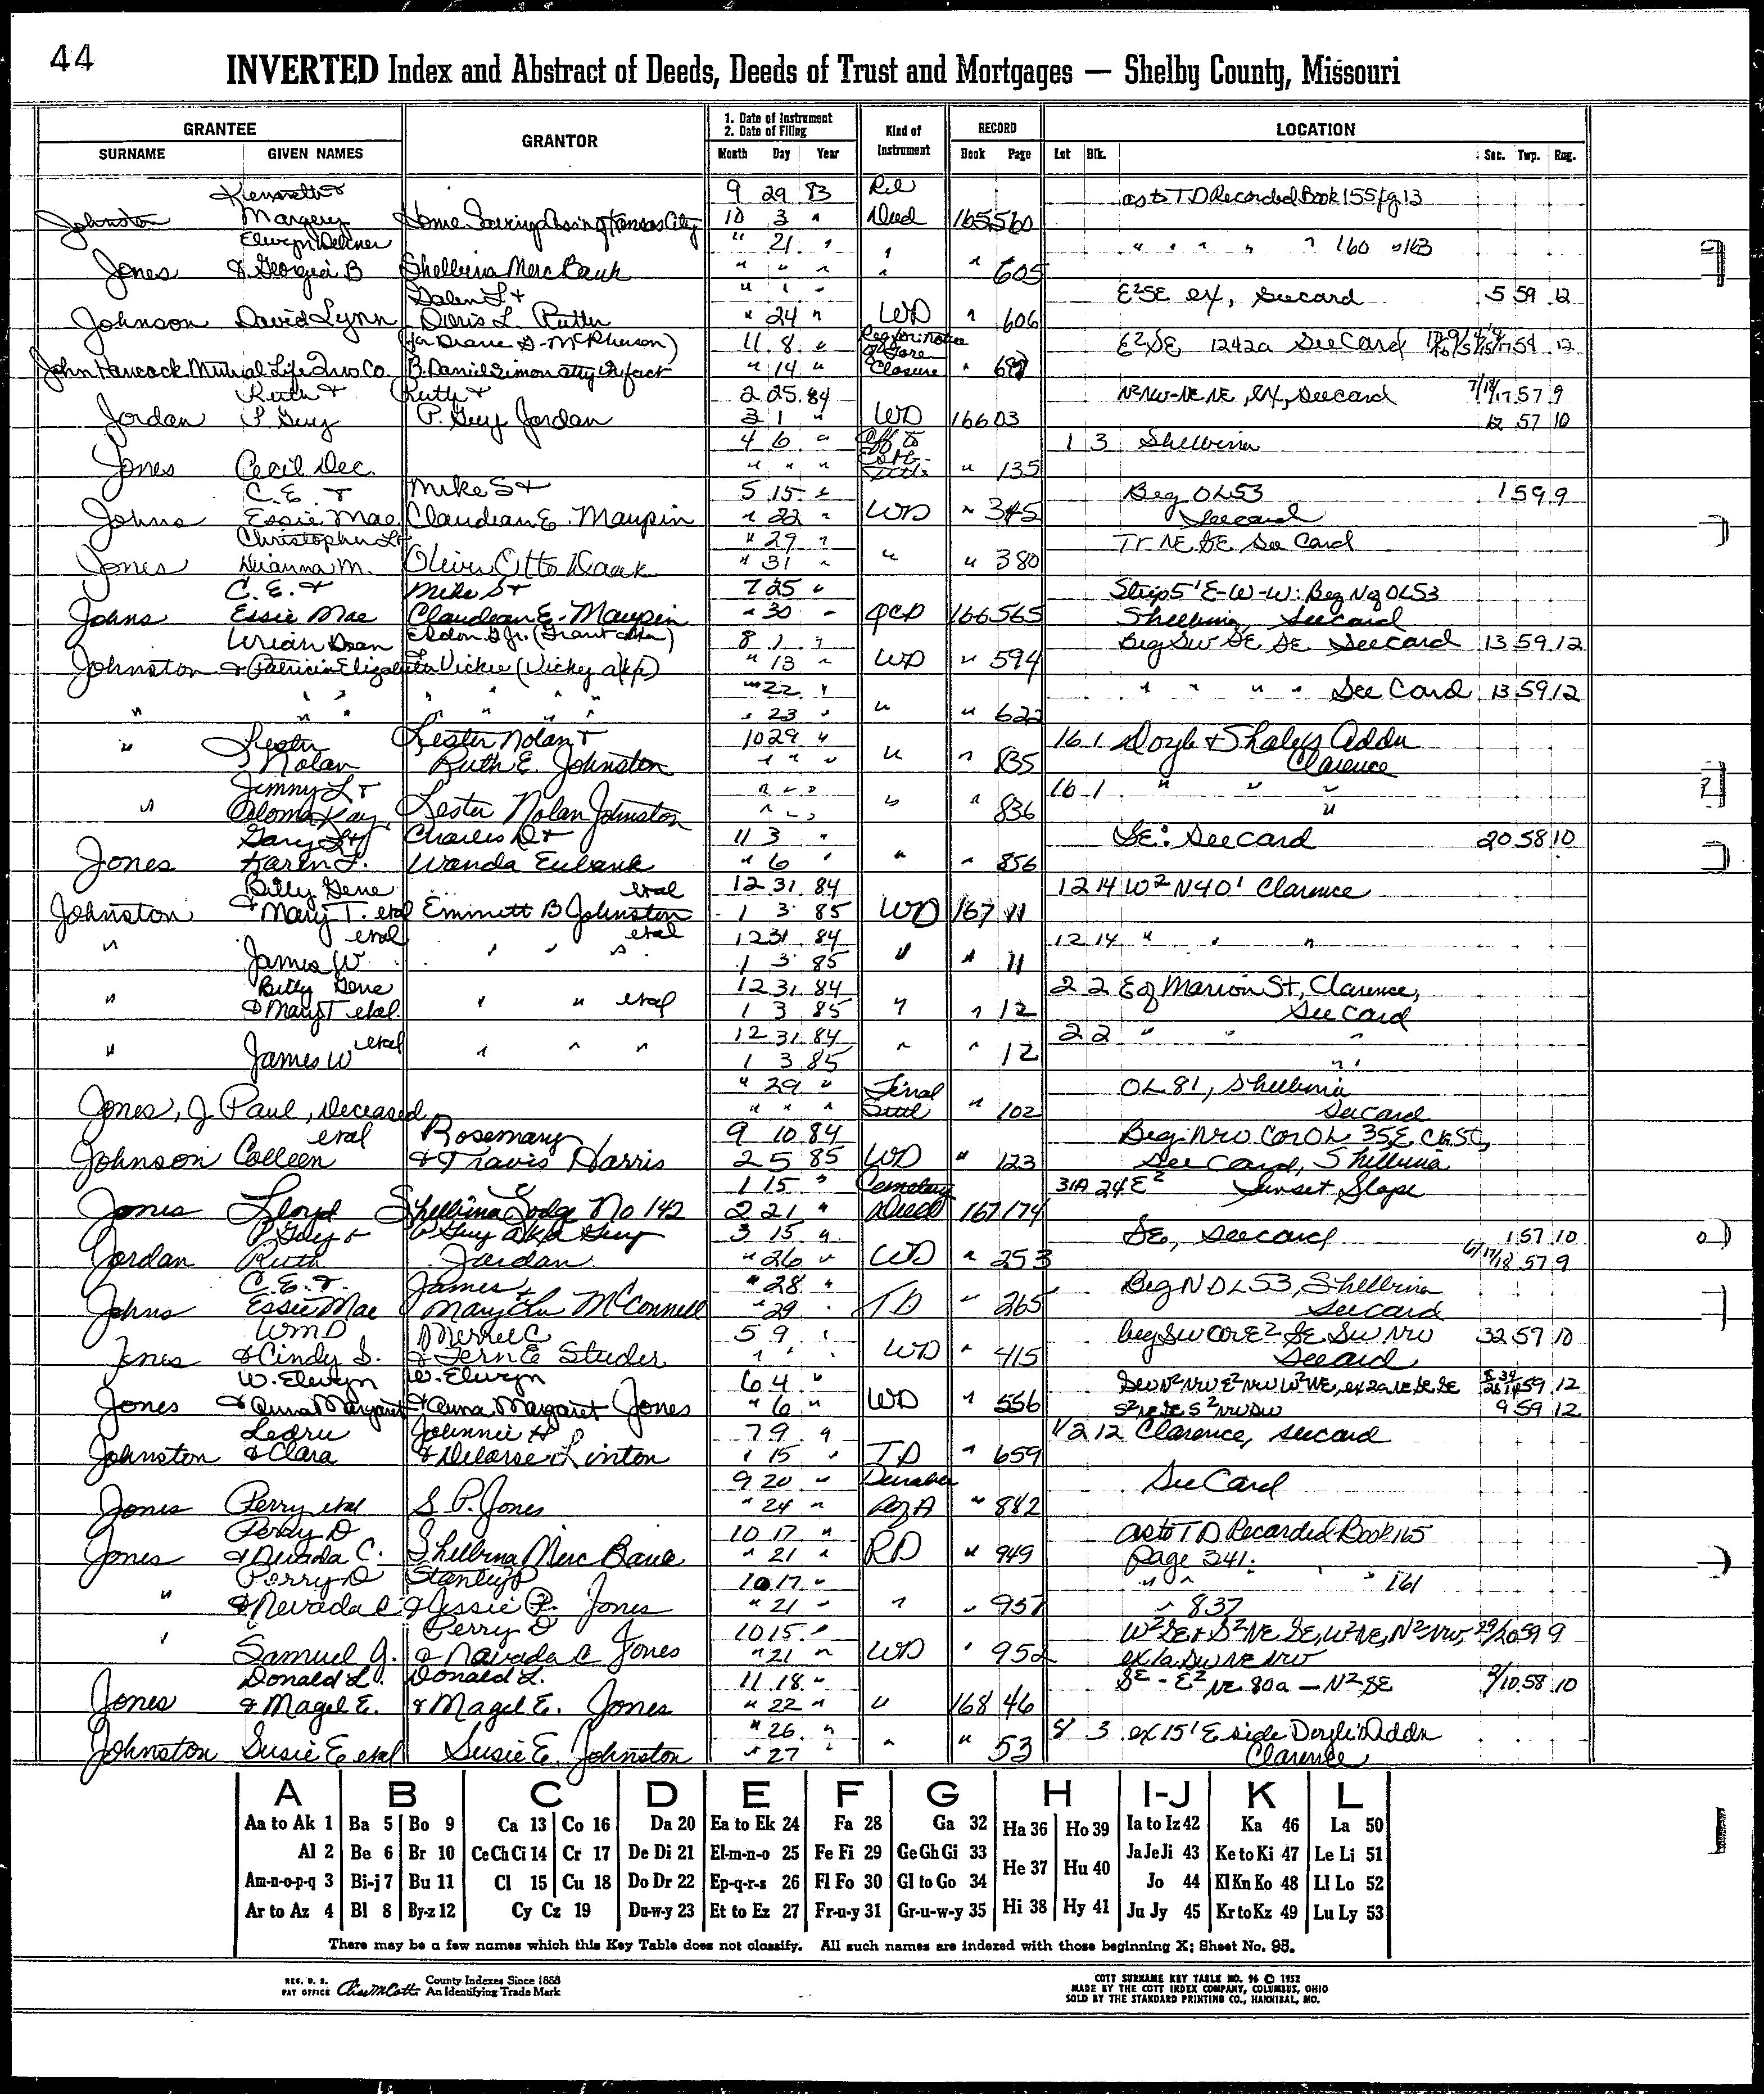 44
INVERTED Index and Abstract of Deeds, Deeds of Trust and Mortgages — Shelby County, Missouri
GRANTEE GRANTOR 1. Date of Instrument 2. Date of Filing Kind of Instrument RECORD LOCATION
SURNAME GIVEN NAMES Month Day Year Book Page Lot Blk. Sec. Twp. Rng.
Kenneth & 9 29 83 Rel as to TD Recorded Book 155 pg 13
Johnston Margery Home Savings Assn of Kansas City 10 3 " Deed 165 560
Elwyn " 21 " " " " " " " 160 " 163
Jones & Georgia B Shelbina Merc Bank " " " " " 605
Galen L & " " " E2SE ex, See card 5 59 12
Johnson David Lynn Doris L. Rutter " 24 " WD " 606
(for Diane G. McPherson) 11 8 " Req for notice of Fore E2SE 1242a See Card 12
John Hancock Mutual Life Ins Co. B. Daniel Simon atty in fact " 14 " Closure "
Ruth & Ruth & 2 25 84 N2NW-NE NE, ex, See card 57 9
Jordan P. Guy P. Guy Jordan 3 1 " WD 166 03 12 57 10
4 6 " Aff to 1 3 Shelbina
Jones Cecil Dec. " " " Title " 135
C. E. & Mike S & 5 15 " Beg OL53 1 59 9
Johns Essie Mae Claudean E. Maupin " 22 " WD " 345 See card
Christopher L & " 29 " Tr NE SE See Card
Jones Dianna M. Oliver Otto Daak " 31 " " " 380
C. E. & Mike S & 7 25 " Strip 5' E-W-W: Beg N of OL53
Johns Essie Mae Claudean E. Maupin " 30 " QCD 166 565 Shelbina, See card
Urian Dean Eldon G Jr. (Grant aka) 8 1 " Beg SW SE SE See card 13 59 12
Johnston & Patricia Elizabeth Vickie (Vicky a/k/a) " 13 " WD " 594
" " " " " " " " 22 " " " " " See Card 13 59 12
" " " " " " " " 23 " " " 622
" Lester Lester Nolan & 10 29 " 16 1 Doyle & Shaleys Addn
Nolan Ruth E. Johnston " " " " " 835 Clarence
Jimmy L & " " " 16 1 " " "
" Paloma Kay Lester Nolan Johnston " " " " " 836 "
Gary L & Charles D & 11 3 " SE: See card 20 58 10
Jones Karen L. Wanda Eubank " 6 " " " 856
Billy Gene etal 12 31 84 12 14 W2 N40' Clarence
Johnston & Mary T. etal Emmett B Johnston 1 3 85 WD 167 11
etal etal 12 31 84 12 14 " " "
" James W. " " " 1 3 85 " " 11
Billy Gene 12 31 84 2 2 E of Marion St, Clarence,
" & Mary T etal " " etal 1 3 85 " " 12 See Card
etal 12 31 84 2 2 " " "
" James W " " " 1 3 85 " " 12 " "
" 29 " Final OL 81, Shelbina
Jones, J Paul, Deceased " " " Settl " 102 See card
etal Rosemary 9 10 84 Beg. NW Cor OL 35, E Ch St,
Johnson Colleen & Travis Harris 2 5 85 WD " 123 See Card, Shelbina
1 15 " Cemetery 31A 24 E2 Sunset Slope
Jones Lloyd Shelbina Lodge No 142 2 21 " Deed 167 174
P Guy & P Guy a/k/a Guy 3 15 " SE, See card 1 57 10
Jordan Ruth Jordan " 26 " WD " 253 6/17/18 57 9
C. E. & James & " 28 " Beg N OL53, Shelbina
Johns Essie Mae Mary Lou McConnell " 29 " TD " 265 See card
Wm D Merrel C 5 9 " beg SW cor E2 SE SW NW 32 57 10
Jones & Cindy S. & Fern E Studer " " " WD " 415 See card
W. Elwyn W. Elwyn 6 4 " SW N2NW E2NW W2NE, ex 2a NE SE SE 59 12
Jones & Anna Margaret & Anna Margaret Jones " 6 " WD " 556 S2NE SE S2NWSW 9 59 12
Ledru Johnnie H 7 9 " 1/2 12 Clarence, See card
Johnston & Clara & Delorse Linton " 15 " TD " 659
9 20 " Durable See Card
Jones Perry etal S. P. Jones " 24 " P of A " 882
Perry D 10 17 " as to TD Recorded Book 165
Jones & Nevada C. Shelbina Merc Bank " 21 " RD " 949 Page 341.
Perry D Stanley P 10 17 " " " " 161
" & Nevada C & Jessie P. Jones " 21 " " " 951 " 837
Perry D 10 15 " W2SE & S2NE SE, W2NE, N2NW, 29/20 59 9
" Samuel G. & Nevada C Jones " 21 " WD " 952 ex 1a SW NE NW
Donald L. Donald L. 11 18 " SE - E2 NE 80a - N2 SE 3/10 58 10
Jones & Magel E. & Magel E. Jones " 22 " " 168 46
" 26 " 8 3 ex 15' E side Doyle's Addn
Johnston Susie E etal Susie E. Johnston " 27 " " " 53 Clarence
A B C D E F G H I-J K L
Aa to Ak 1 Ba 5 Bo 9 Ca 13 Co 16 Da 20 Ea to Ek 24 Fa 28 Ga 32 Ha 36 Ho 39 Ia to Iz 42 Ka 46 La 50
Al 2 Be 6 Br 10 Ce Ch Ci 14 Cr 17 De Di 21 El-m-n-o 25 Fe Fi 29 Ge Gh Gi 33 He 37 Hu 40 Ja Je Ji 43 Ke to Ki 47 Le Li 51
Am-n-o-p-q 3 Bi-j 7 Bu 11 Cl 15 Cu 18 Do Dr 22 Ep-q-r-s 26 Fl Fo 30 Gl to Go 34 Jo 44 Kl Kn Ko 48 Ll Lo 52
Ar to Az 4 Bl 8 By-z 12 Cy Cz 19 Du-w-y 23 Et to Ez 27 Fr-u-y 31 Gr-u-w-y 35 Hi 38 Hy 41 Ju Jy 45 Kr to Kz 49 Lu Ly 53
There may be a few names which this Key Table does not classify. All such names are indexed with those beginning X; Sheet No. 95.
REG. U. S. PAT OFFICE County Indexes Since 1888 An Identifying Trade Mark
COTT SURNAME KEY TABLE NO. 96 © 1952
MADE BY THE COTT INDEX COMPANY, COLUMBUS, OHIO
SOLD BY THE STANDARD PRINTING CO., HANNIBAL, MO.